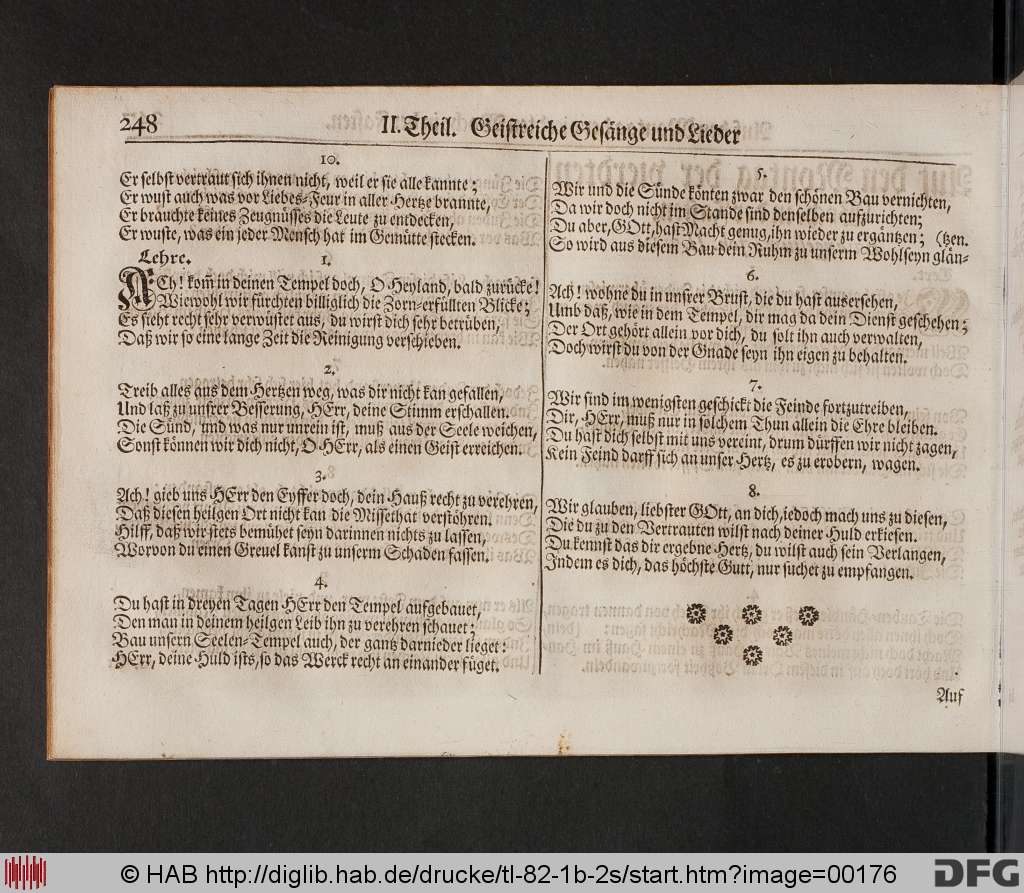 248
II. Theil. Geistreiche Gesänge und Lieder
10.
Er selbst vertraut sich ihnen nicht, weil er sie alle kannte;
Er wust auch was vor Liebes-Feur in aller Hertze brannte,
Er brauchte keines Zeugnüsses die Leute zu entdecken,
Er wuste, was ein jeder Mensch hat im Gemütte stecken.
Lehre. 1.
ACh! kom̃ in deinen Tempel doch, O Heyland, bald zurücke!
Wiewohl wir fürchten billiglich die Zorn-erfüllten Blicke;
Es sieht recht sehr verwüstet aus, du wirst dich sehr betrüben,
Daß wir so eine lange Zeit die Reinigung verschieben.
2.
Treib alles aus dem Hertzen weg, was dir nicht kan gefallen,
Und laß zu unsrer Besserung, HErr, deine Stimm erschallen.
Die Sünd, und was nur unrein ist, muß aus der Seele weichen,
Sonst können wir dich nicht, O HErr, als einen Geist erreichen.
3.
Ach! gieb uns HErr den Eyffer doch, dein Hauß recht zu verehren,
Daß diesen heilgen Ort nicht kan die Missethat verstöhren.
Hilff, daß wir stets bemühet seyn darinnen nichts zu lassen,
Worvon du einen Greuel kanst zu unserm Schaden fassen.
4.
Du hast in dreyen Tagen HErr den Tempel aufgebauet,
Den man in deinem heilgen Leib ihn zu verehren schauet;
Bau unsern Seelen-Tempel auch, der gantz darnieder lieget:
HErr, deine Huld ists, so das Werck recht an einander füget.
5.
Wir und die Sünde könten zwar den schönen Bau vernichten,
Da wir doch nicht im Stande sind denselben aufzurichten;
Du aber, GOtt, hast Macht genug, ihn wieder zu ergäntzen; (tzen.
So wird aus diesem Bau dein Ruhm zu unserm Wohlseyn glän-
6.
Ach! wohne du in unsrer Brust, die du hast ausersehen,
Umb daß, wie in dem Tempel, dir mag da dein Dienst geschehen;
Der Ort gehört allein vor dich, du solt ihn auch verwalten,
Doch wirst du von der Gnade seyn ihn eigen zu behalten.
7.
Wir sind im wenigsten geschickt die Feinde fortzutreiben,
Dir, HErr, muß nur in solchem Thun allein die Ehre bleiben.
Du hast dich selbst mit uns vereint, drum dürffen wir nicht zagen,
Kein Feind darff sich an unser Hertz, es zu erobern, wagen.
8.
Wir glauben, liebster GOtt, an dich, iedoch mach uns zu diesen,
Die du zu den Vertrauten wilst nach deiner Huld erkiesen.
Du kennst das dir ergebne Hertz, du wilst auch sein Verlangen,
Indem es dich, das höchste Gutt, nur suchet zu empfangen.
Auf
© HAB http://diglib.hab.de/drucke/tl-82-1b-2s/start.htm?image=00176
DFG